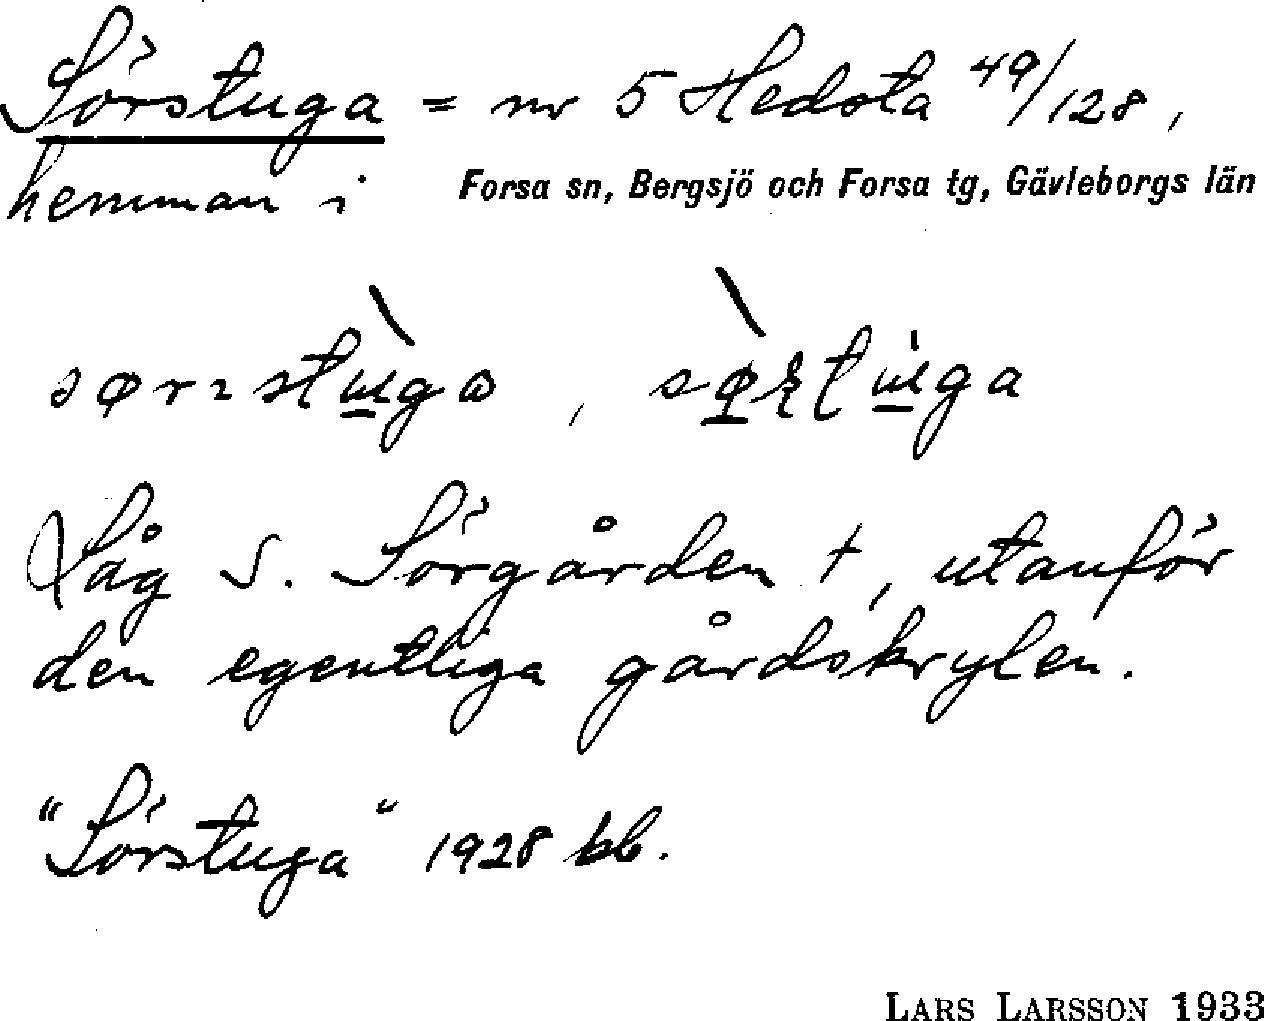 Sörstuga = nr 5 Hedsta 49/128,
hemman i Forsa sn, Bergsjö och Forsa tg, Gävleborgs län
Låg S. Sörgården †, utanför
den egentliga gårdskrylen.
"Sörstuga" 1928 kb.
LARS LARSSON 1933